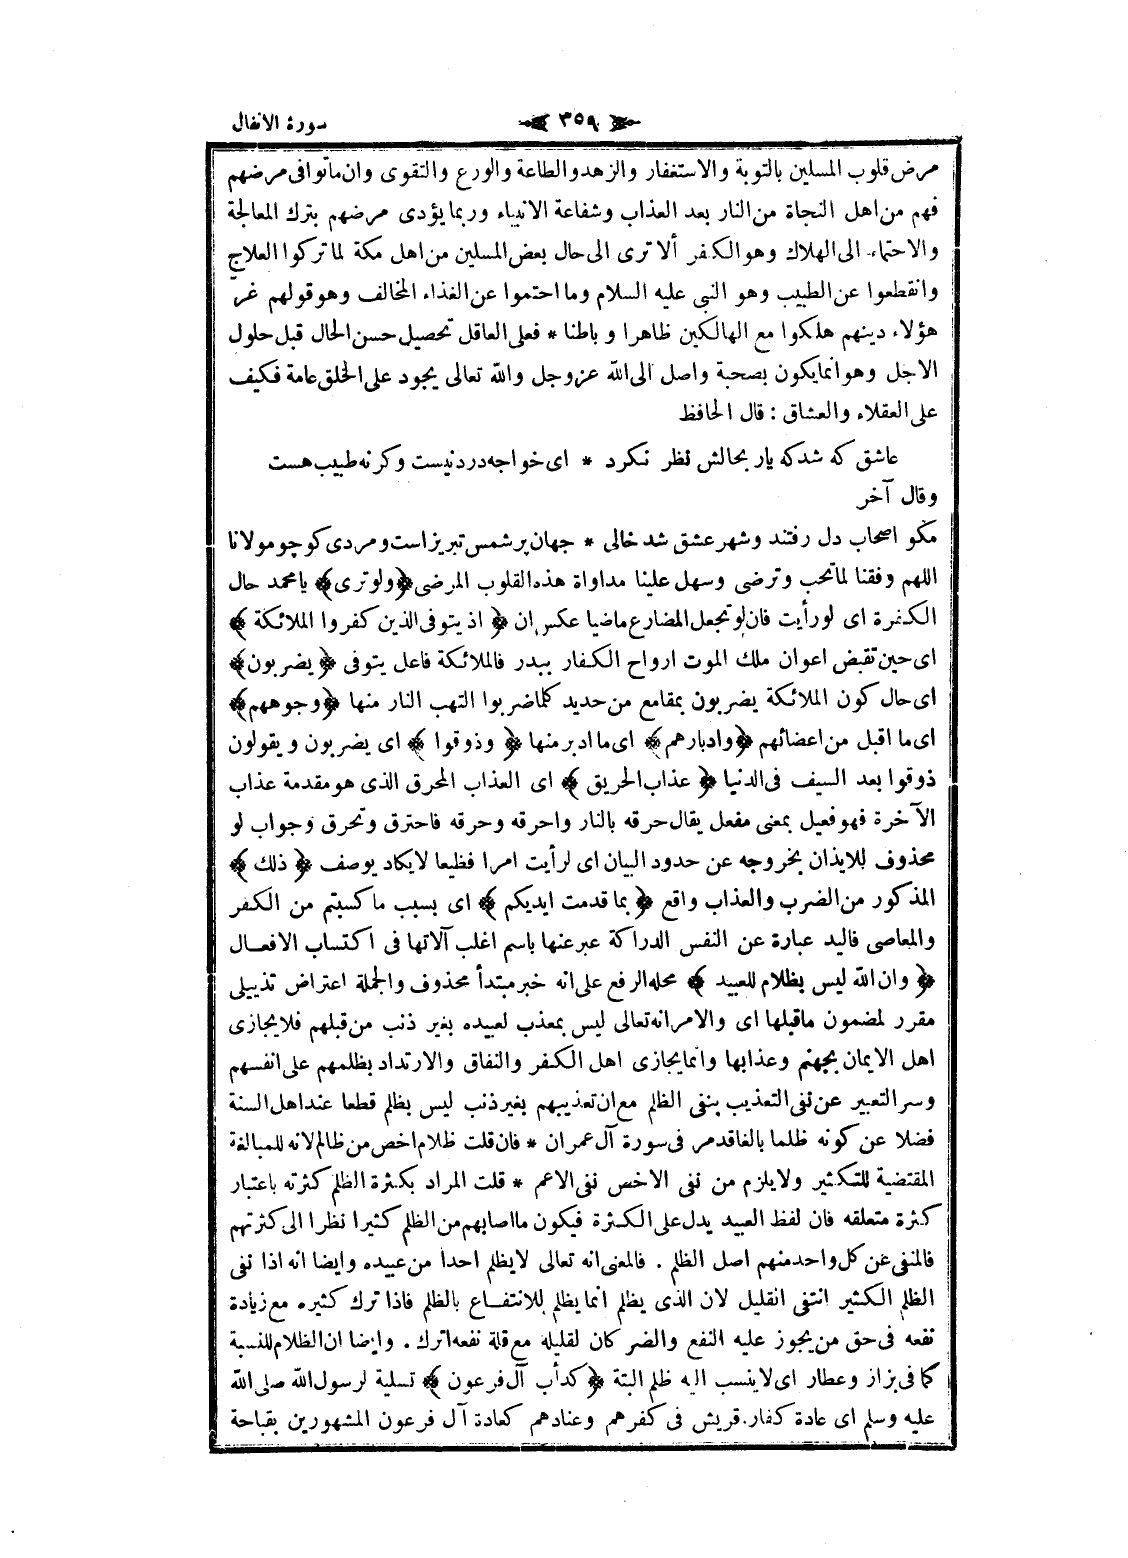 سورة الانفال
٣٥٩
مرض قلوب المسلين بالتوبة والاستغفار والزهد والطاعة والورع والتقوى وان ماتوا فى مرضهم
فهم من اهل النجاة من النار بعد العذاب وشفاعة الانبياء وربما يؤدى مرضهم بترك المعالجة
والاحتماء الى الهلاك وهو الكفر ألا ترى الى حال بعض المسلين من اهل مكة لما تركوا العلاج
وانقطعوا عن الطبيب وهو النبى عليه السلام وما احتموا عن الغذاء المخالف وهو قولهم غرّ
هؤلاء دينهم هلكوا مع الهالكين ظاهرا وباطنا * فعلى العاقل تحصيل حسن الحال قبل حلول
الاجل وهو انما يكون بصحبة واصل الى الله عز وجل والله تعالى يجود على الخلق عامة فكيف
على العقلاء والعشاق : قال الحافظ
عاشق كه شدكه يار بحالش نظر نكرد * اى خواجه درد نيست وكرنه طبيب هست
وقال آخر
مكو اصحاب دل رفتند وشهر عشق شد خالى * جهان پر شمس تبريز است ومردى كو چو مولانا
اللهم وفقنا لما تحب وترضى وسهل علينا مداواة هذه القلوب المرضى ﴿ ولو ترى ﴾ يا محمد حال
الكفرة اى لو رأيت فان لو تجعل المضارع ماضيا عكس ان ﴿ اذ يتوفى الذين كفروا الملائكة ﴾
اى حين تقبض اعوان ملك الموت ارواح الكفار ببدر فالملائكة فاعل يتوفى ﴿ يضربون ﴾
اى حال كون الملائكة يضربون بمقامع من حديد كلما ضربوا التهب النار منها ﴿ وجوههم ﴾
اى ما اقبل من اعضائهم ﴿ وادبارهم ﴾ اى ما ادبر منها ﴿ وذوقوا ﴾ اى يضربون ويقولون
ذوقوا بعد السيف فى الدنيا ﴿ عذاب الحريق ﴾ اى العذاب المحرق الذى هو مقدمة عذاب
الآخرة فهو فعيل بمعنى مفعل يقال حرقه بالنار واحرقه وحرقه فاحترق وتحرق وجواب لو
محذوف للايذان بخروجه عن حدود البيان اى لرأيت امرا فظيعا لا يكاد يوصف ﴿ ذلك ﴾
المذكور من الضرب والعذاب واقع ﴿ بما قدمت ايديكم ﴾ اى بسبب ما كسبتم من الكفر
والمعاصى فاليد عبارة عن النفس الدراكة عبر عنها باسم اغلب آلاتها فى اكتساب الافعال
﴿ وان الله ليس بظلام للعبيد ﴾ محله الرفع على انه خبر مبتدأ محذوف والجملة اعتراض تذييلى
مقرر لمضمون ما قبلها اى والامر انه تعالى ليس بمعذب لعبيده بغير ذنب من قبلهم فلا يجازى
اهل الايمان بجهنم وعذابها وانما يجازى اهل الكفر والنفاق والارتداد بظلمهم على انفسهم
وسر التعبير عن نفى التعذيب بنفى الظلم مع ان تعذيبهم بغير ذنب ليس بظلم قطعا عند اهل السنة
فضلا عن كونه ظلما بالغا قد مر فى سورة آل عمران * فان قلت ظلام اخص من ظالم لانه للمبالغة
المقتضية للتكثير ولا يلزم من نفى الاخص نفى الاعم * قلت المراد بكثرة الظلم كثرته باعتبار
كثرة متعلقه فان لفظ العبيد يدل على الكثرة فيكون ما اصابهم من الظلم كثيرا نظرا الى كثرتهم
فالمنفى عن كل واحد منهم اصل الظلم . فالمعنى انه تعالى لا يظلم احدا من عبيده وايضا انه اذا نفى
الظلم الكثير انتفى القليل لان الذى يظلم انما يظلم للانتفاع بالظلم فاذا ترك كثيره مع زيادة
نفعه فى حق من يجوز عليه النفع والضر كان لقليله مع قلة نفعه اترك . وايضا ان الظلام للنسبة
كما فى بزاز وعطار اى لا ينسب اليه ظلم البتة ﴿ كدأب آل فرعون ﴾ تسلية لرسول الله صلى الله
عليه وسلم اى عادة كفار قريش فى كفرهم وعنادهم كعادة آل فرعون المشهورين بقباحة